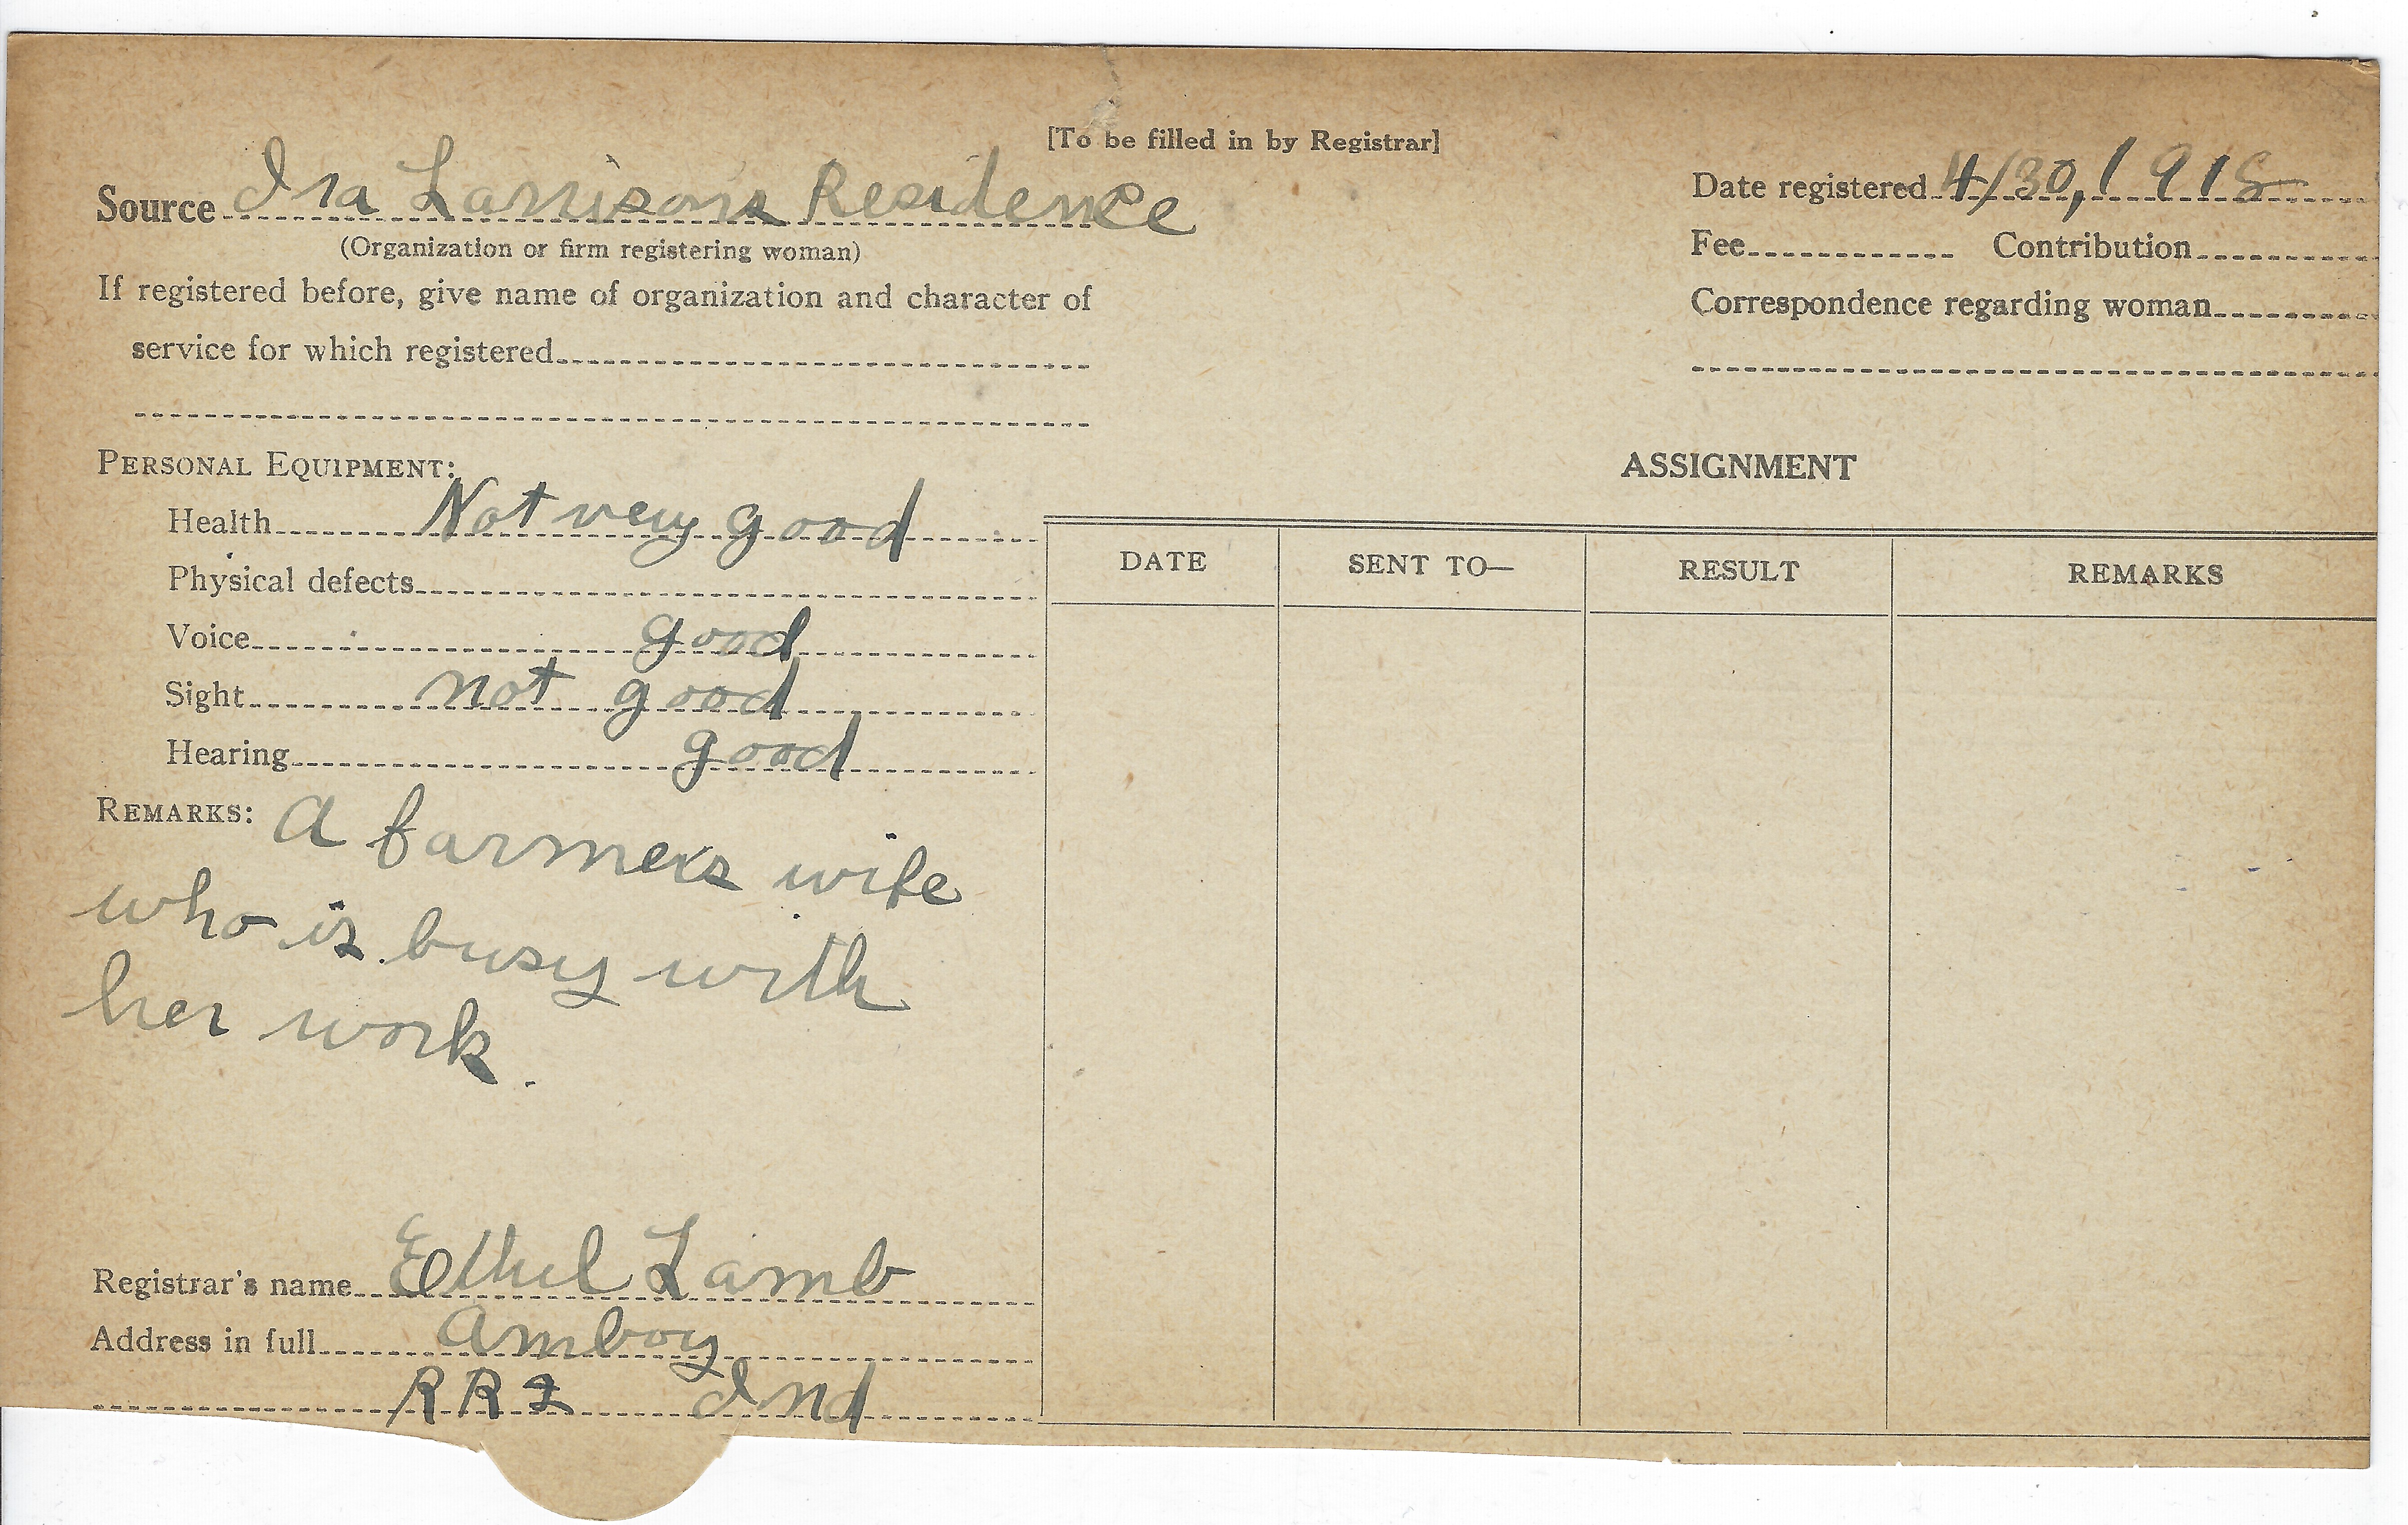 [To be filled in by Registrar]
Source Ira Larrisons Residence
(Organization or firm registering woman)
If registered before, give name of organization and character of
service for which registered
Date registered 4/30, 1918
Fee Contribution
Correspondence regarding woman
PERSONAL EQUIPMENT:
Health Not very good
Physical defects
Voice good
Sight not good
Hearing good
REMARKS: A farmers wife
who is busy with
her work.
Registrar's name Ethel Lamb
Address in full Amboy
RR 2 Ind
ASSIGNMENT
DATE SENT TO— RESULT REMARKS